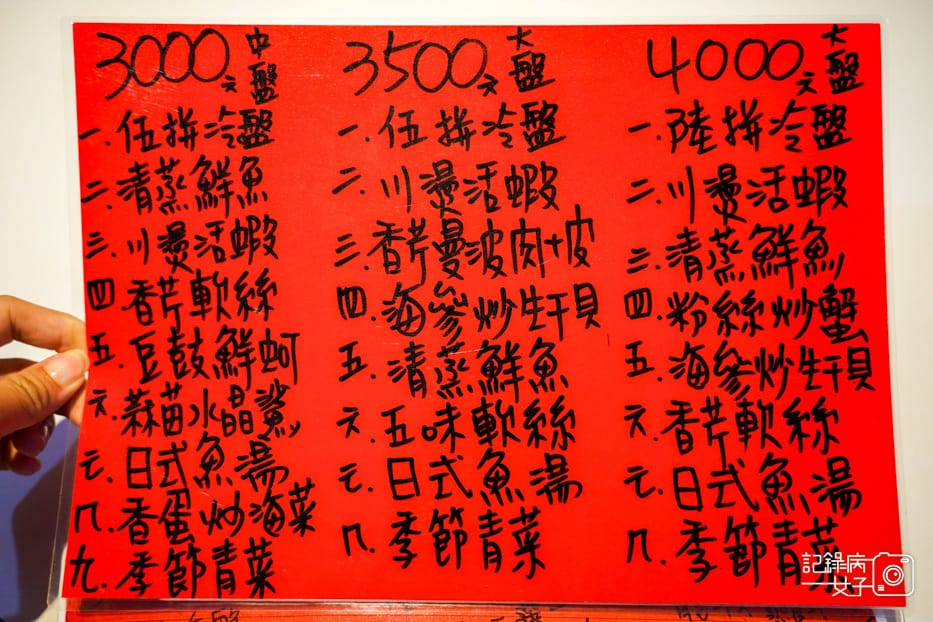 3000元 中盤
一.伍拼冷盤
二.清蒸鮮魚
三.川燙活蝦
四.香芹軟絲
五.豆鼓鮮蚵
六.蒜苗水晶鯊
七.日式魚湯
八.香蛋炒海菜
九.季節青菜
3500元 大盤
一.伍拼冷盤
二.川燙活蝦
三.香芹曼波肉+皮
四.海參炒生干貝
五.清蒸鮮魚
六.五味軟絲
七.日式魚湯
八.季節青菜
4000元 大盤
一.陸拼冷盤
二.川燙活蝦
三.清蒸鮮魚
四.粉絲炒蟹
五.海參炒生干貝
六.香芹軟絲
七.日式魚湯
八.季節青菜
記錄病
女子